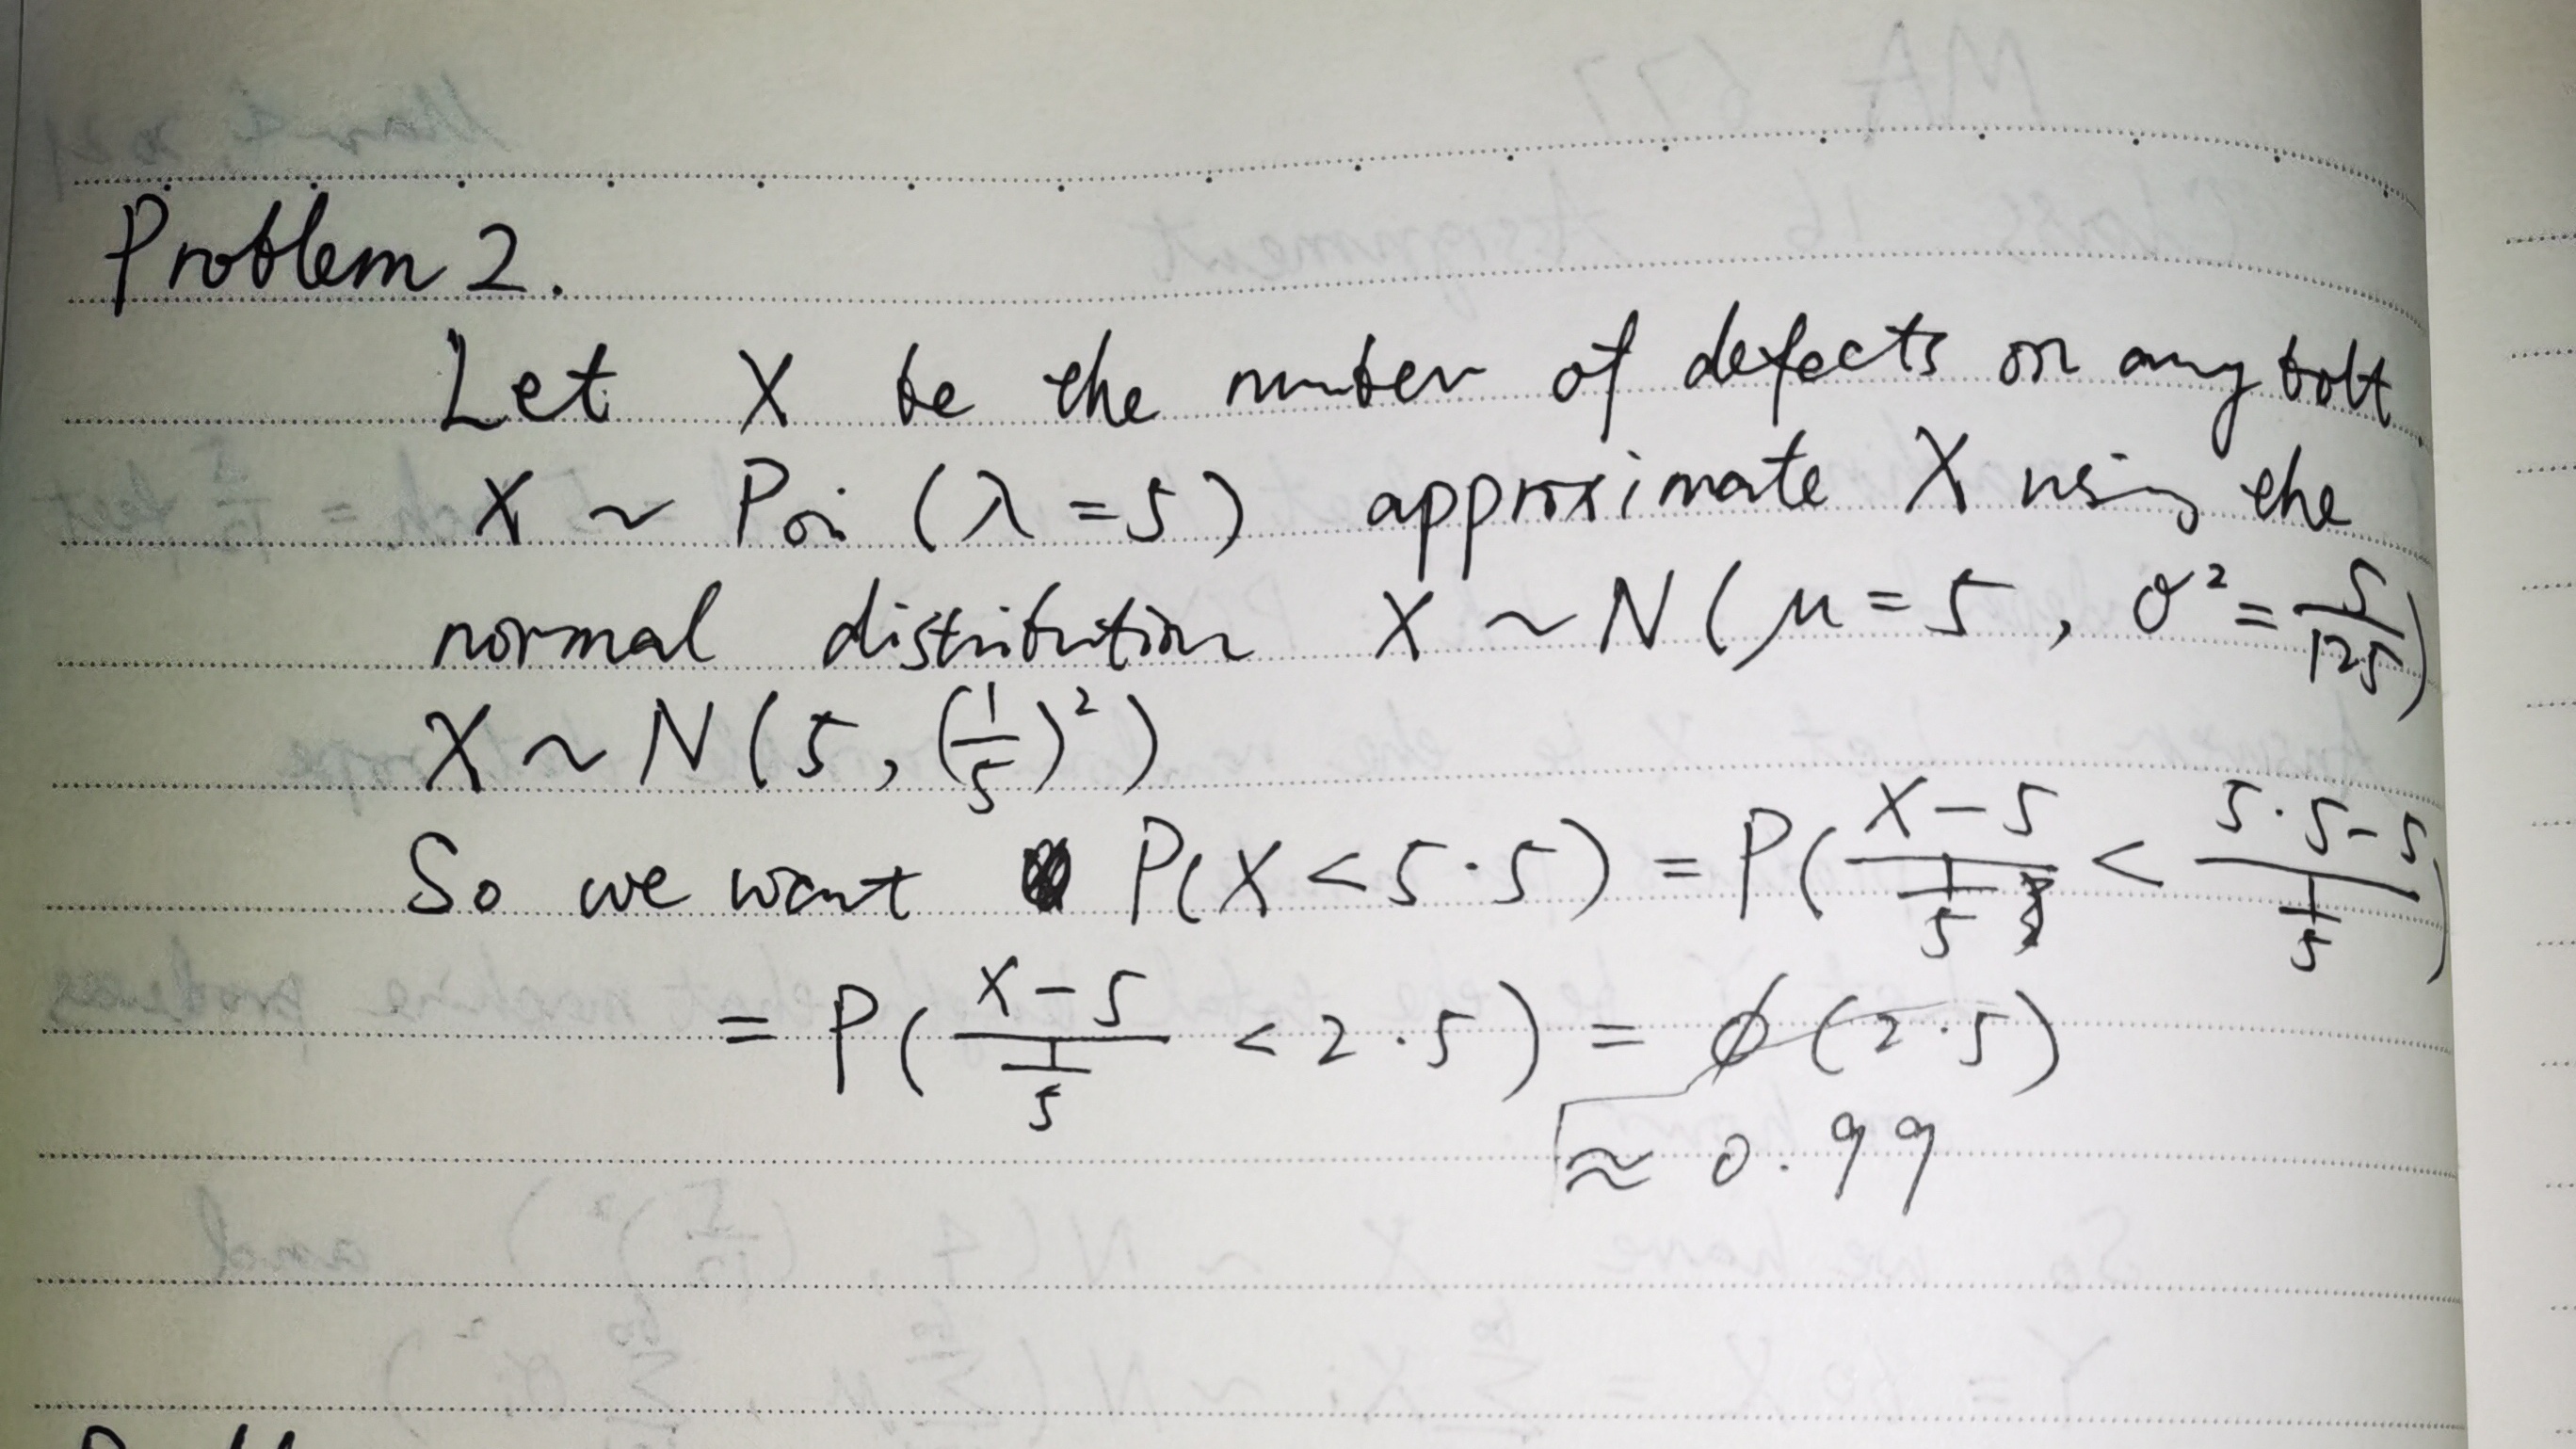 Problem 2.
Let X be the number of defects on any bolt
X ~ Poi (λ = 5) approximate X using the
normal distribution X ~ N ( μ = 5 , σ² = 5/125 )
X ~ N ( 5 , (1/5)² )
So we want P( X < 5·5 ) = P( (X - 5)/(1/5) < (5·5 - 5)/(1/5) )
= P( (X - 5)/(1/5) < 2·5 ) = ϕ (2·5)
≈ 0.99